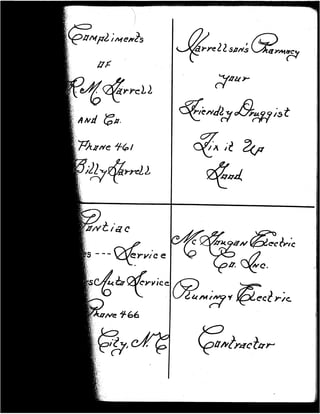 Compliments
OF
R.M. Garrell
AND Co.
Phone 461
Billy Garrell
Harrellson's Pharmacy
your
Friendly Druggist
Fix it Up
Good
Pontiac
--- Service
Auto Service
Phone 466
City, N.C
Mc Gougan Electric
Co. Inc.
Pluming & Electric
Contractor